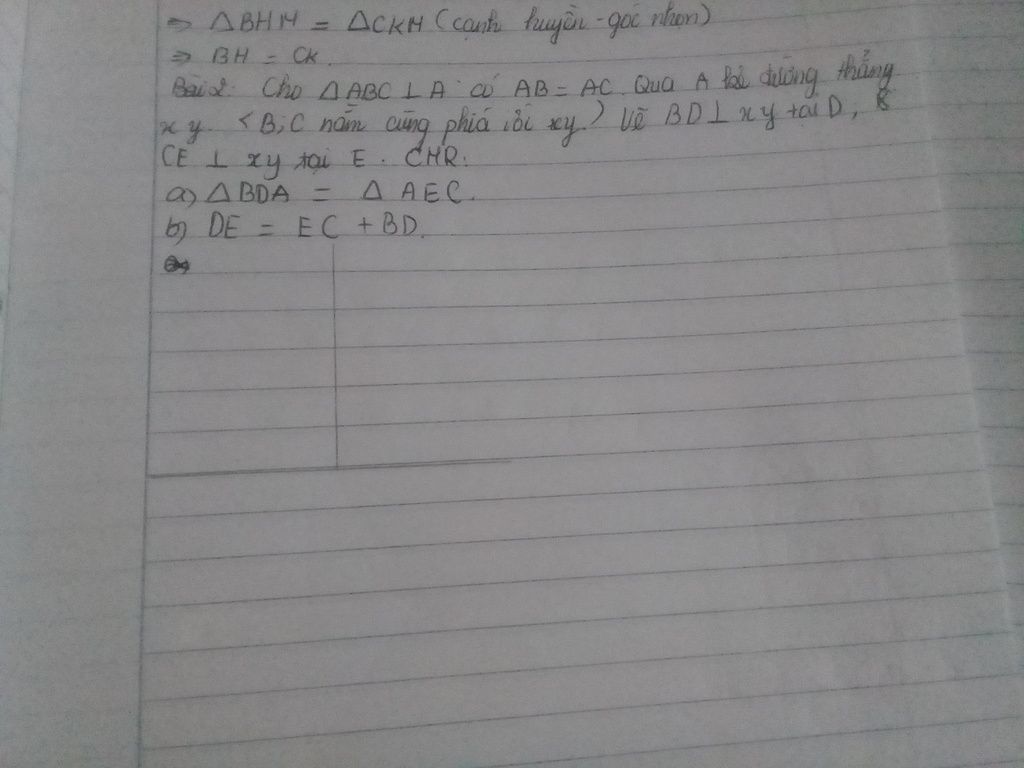 ⇒ ΔBHM = ΔCKM (cạnh huyền - góc nhọn)
⇒ BH = CK.
Bài 2: Cho ΔABC ⊥ A có AB = AC. Qua A kẻ đường thẳng
xy. (B, C nằm cùng phía với xy.) Vẽ BD ⊥ xy tại D,
CE ⊥ xy tại E. CMR:
a) ΔBDA = ΔAEC.
b) DE = EC + BD.